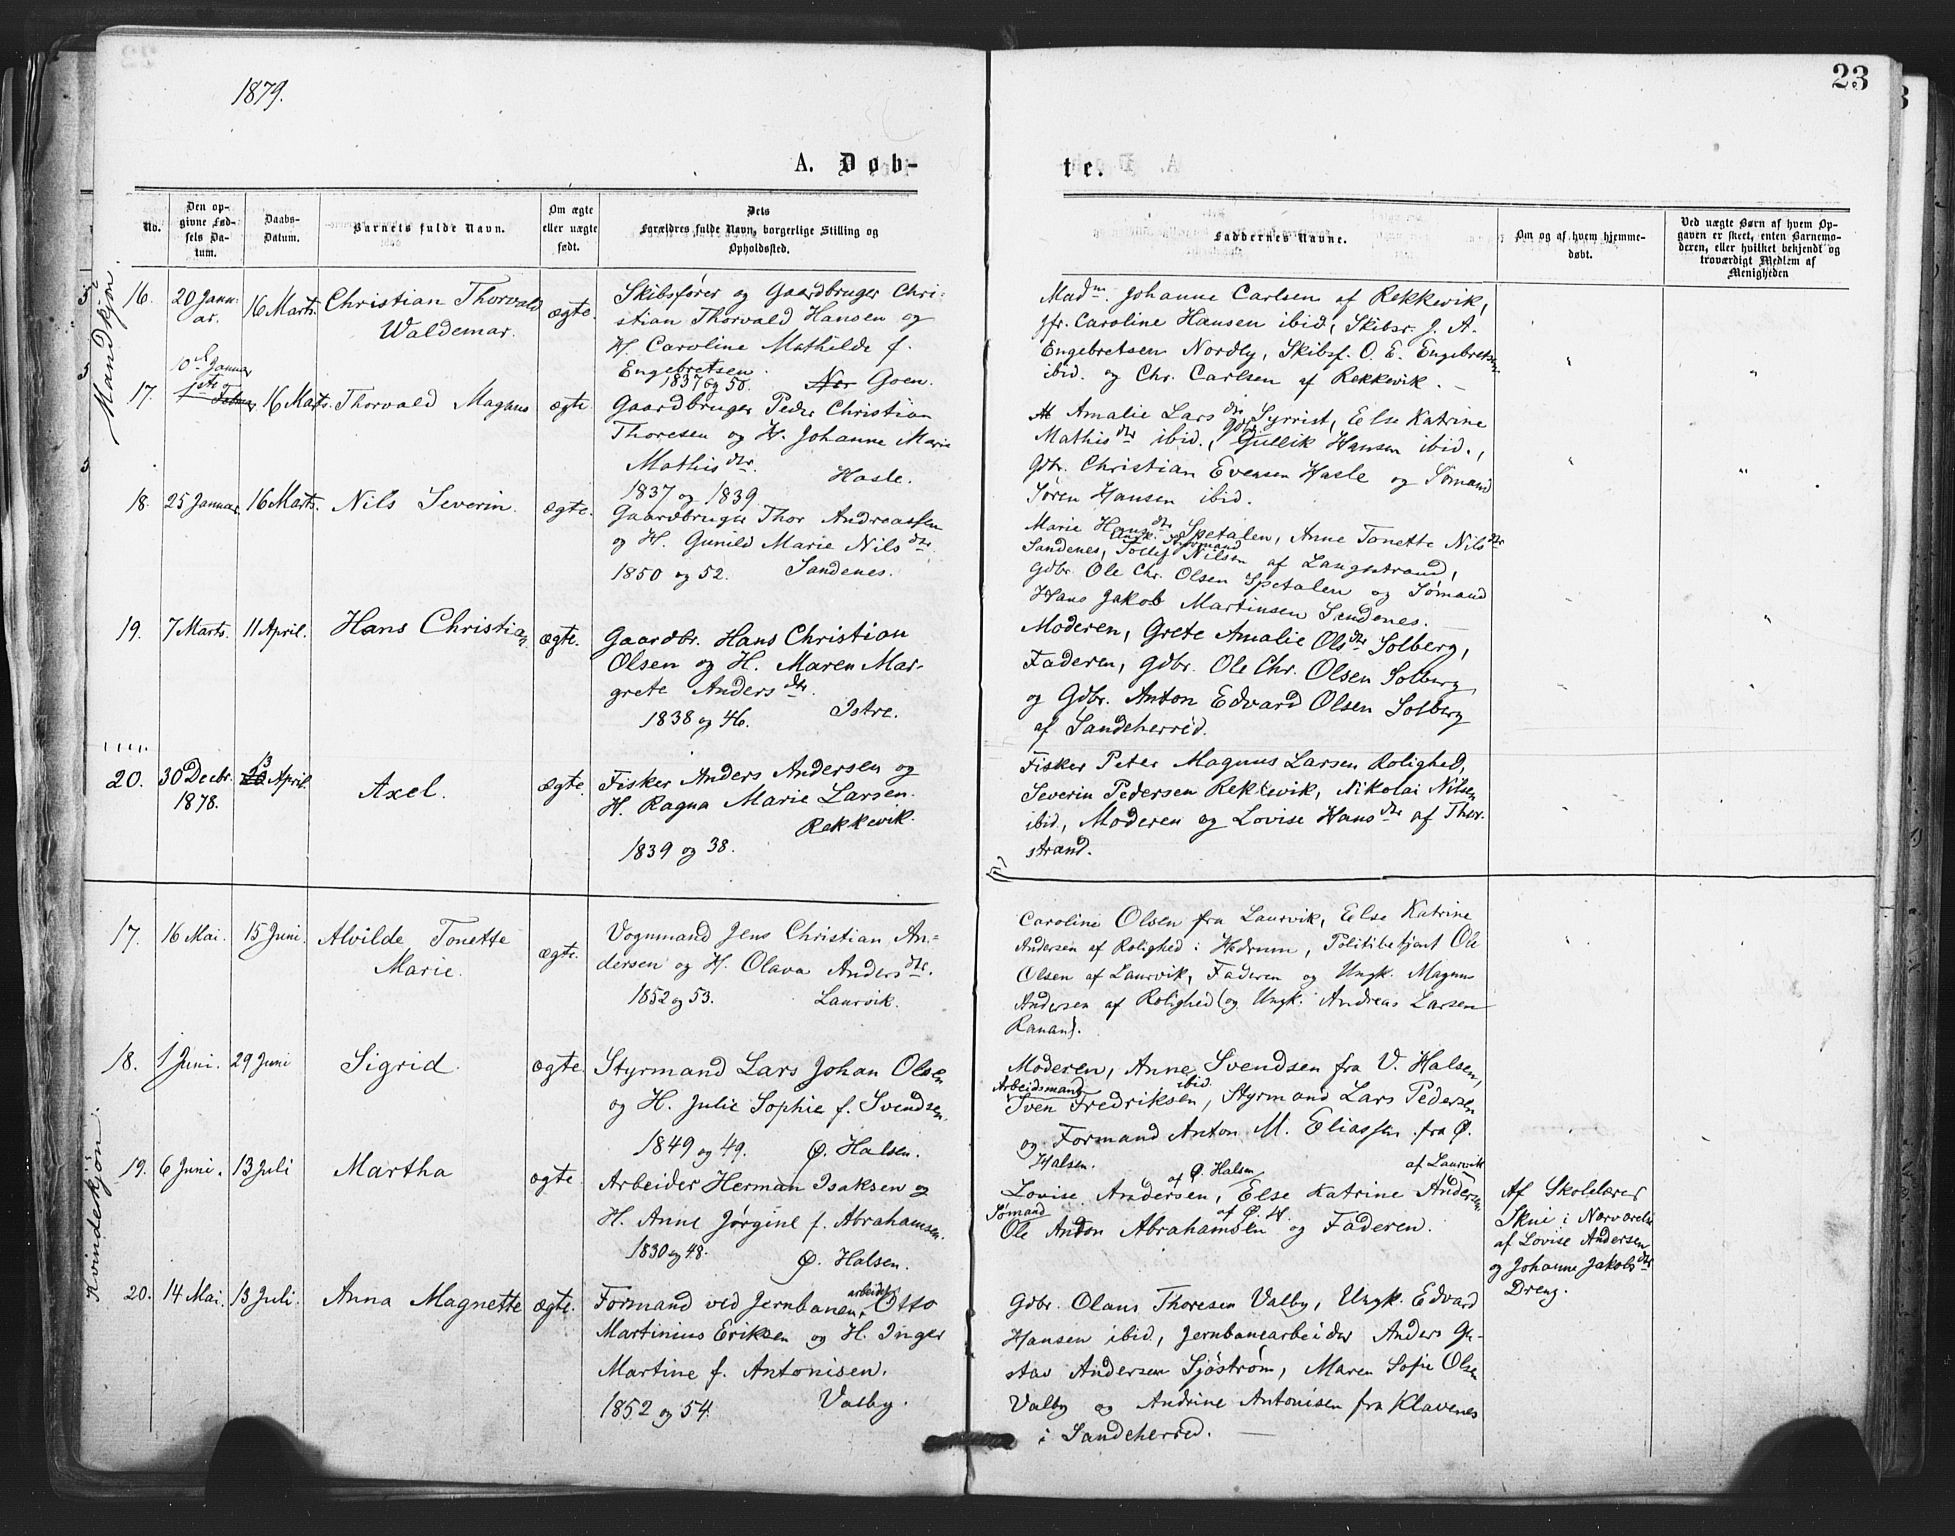 1879.
23
A. Døb-
te.
No.
Den op-
givne Fød-
sels Da-
tum.
Daabs-
Datum.
Barnets fulde Navn.
Om ægte
eller uægte
født.
Dets
Forældres fulde Navn, borgerlige Stilling og
Opholdssted.
Faddernes Navne.
Om og af hvem hjemme-
døbt.
Ved uægte Børn af hvem Op-
gaven er skeet, enten Barnemo-
deren, eller hvilket bekjendt og
troværdigt Medlem af
Menigheden
Mandkjøn.
16.
20 Janu-
ar.
16 Marts.
Christian Thorvald
Waldemar.
ægte.
Skibsfører og Gaardbruger Chri-
stian Thorvald Hansen og
H. Caroline Mathilde f.
Engebretsen.
1837 og 50. Goen.
Madm. Johanne Carlsen af Rekkevik,
Jfr. Caroline Hansen ibid, Skibsr. J. A.
Engebretsen Nordby, Skibsf. O. E. Engebretsen
ibid. og Chr. Carlsen af Rekkevik.
17.
10de Januar
16 Marts.
Thorvald Magnus
ægte
Gaardbruger Peder Christian
Thoresen og H. Johanne Marie
Mathisdtr.
Hasle.
1837 og 1839.
Amalie Larsdtr Syrrist, Else Katrine
Mathisdtr ibid., Gdbr. Gullik Hansen ibid.,
Gdbr. Christian Evensen Hasle og Sømand
Søren Hansen ibid.
18.
25 Januar.
16 Marts.
Nils Severin.
ægte.
Gaardbruger Thor Andreassen
og H. Gunild Marie Nilsdtr.
1850 og 52. Sandenes.
Marie Hansdtr Spetalen, Anne Tonette Nilsdtr
Ungk. Styrmand
Sandenes, Tollef Nilsen af Langestrand,
Gdbr. Ole Chr. Olsen Spetalen og Sømand
Hans Jakob Martinsen Sandenes.
19.
7 Marts.
11 April.
Hans Christian
ægte.
Gaardbr. Hans Christian
Olsen og H. Maren Mar-
grete Andersdtr.
1838 og 46. Istre.
Moderen, Grete Amalie Olsdtr Solberg,
Faderen, Gdbr. Ole Chr. Olsen Solberg
og Gdbr. Anton Edvard Olsen Solberg
af Sandeherred.
20.
30 Decbr.
1878.
13 April.
Axel.
ægte.
Fisker Anders Andersen og
H. Ragna Marie Larsen.
Rekkevik.
1839 og 38.
Fisker Peter Magnus Larsen Rolighed,
Severin Pedersen Rekkevik, Nikolai Nilsen
ibid, Moderen og Lovise Hansdtr af Thor-
strand.
Kvindekjøn.
17.
16 Mai.
15 Juni.
Alvilde Tonette
Marie.
ægte.
Vognmand Jens Christian An-
dersen og H. Olava Andersdtr.
1852 og 53. Laurvik.
Caroline Olsen fra Laurvik, Else Katrine
Andersen af Rolighed i Hedrum, Politibetjent Ole
Olsen af Laurvik, Faderen og Ungk. Magnus
Andersen af Rolighed (og Ungk. Andreas Larsen
Ranan).
18.
1 Juni.
29 Juni
Sigrid.
ægte.
Styrmand Lars Johan Olsen
og H. Julie Sophie f. Svendsen.
1849 og 49. Ø. Halsen.
Moderen, Anne Svendsen fra V. Halsen,
Arbeidsmand ibid.
Sven Fredriksen, Styrmand Lars Pedersen
og Formand Anton M. Eliassen fra Ø.
Halsen.
19.
6 Juni.
13 Juli
Martha
ægte
Arbeider Herman Isaksen og
H. Anne Jørgine f. Abrahamsen.
1830 og 48. Ø. Halsen.
af Ø. Halsen af Laurvik
Lovise Andersen, Else Katrine Andersen
Sømand af Ø. H.
Ole Anton Abrahamsen og Faderen.
Af Skolelærer
Skui i Narvarelen
af Lovise Andersen
og Johanne Jakobsdtr
Dreng.
20.
14 Mai.
13 Juli.
Anna Magnette
ægte.
Formand ved Jernbanearbeidet Otto
Martinius Eriksen og H. Inger
Martine f. Antonisen.
1852 og 54. Valby.
Gdbr. Olaus Thoresen Valby, Ungk. Edvard
Hansen ibid, Jernbanearbeider Anders Gu-
stav Andersen Sjöström, Maren Sofie Olsen
Valby og Andrine Antonisen fra Klavenes
i Sandeherred.